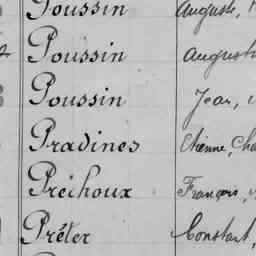 Poussin Auguste,
Poussin
Poussin Jean,
Pradines Etienne,
Préchoux François,
Prêter Constant,